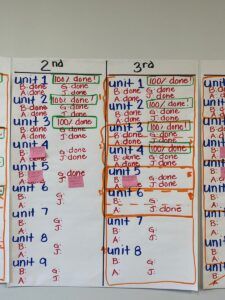 2nd
unit 1 100% done!
B: done G: done
A: done J: done
unit 2 100% done!
B: done G: done
A: done J: done
unit 3 100% done!
B: done G: done
A: done J: done
unit 4
B: G: done
A: J: done
unit 5
B: G: done
A: J: done
unit 6
B: G:
A: J:
unit 7
B: G:
A: J:
unit 8
B: G:
A: J:
unit 9
B: G:
A: J:
3rd
unit 1 100% done!
B: done G: done
A: done J: done
unit 2 100% done!
B: done G: done
A: done J: done
unit 3 100% done!
B: done G: done
A: done J: done
unit 4 100% done!
B: done G: done
A: done J: done
unit 5
B: G: done
A: J: done
unit 6
B: G:
A: J: done
unit 7
B: G:
A: J:
unit 8
B: G:
A: J: